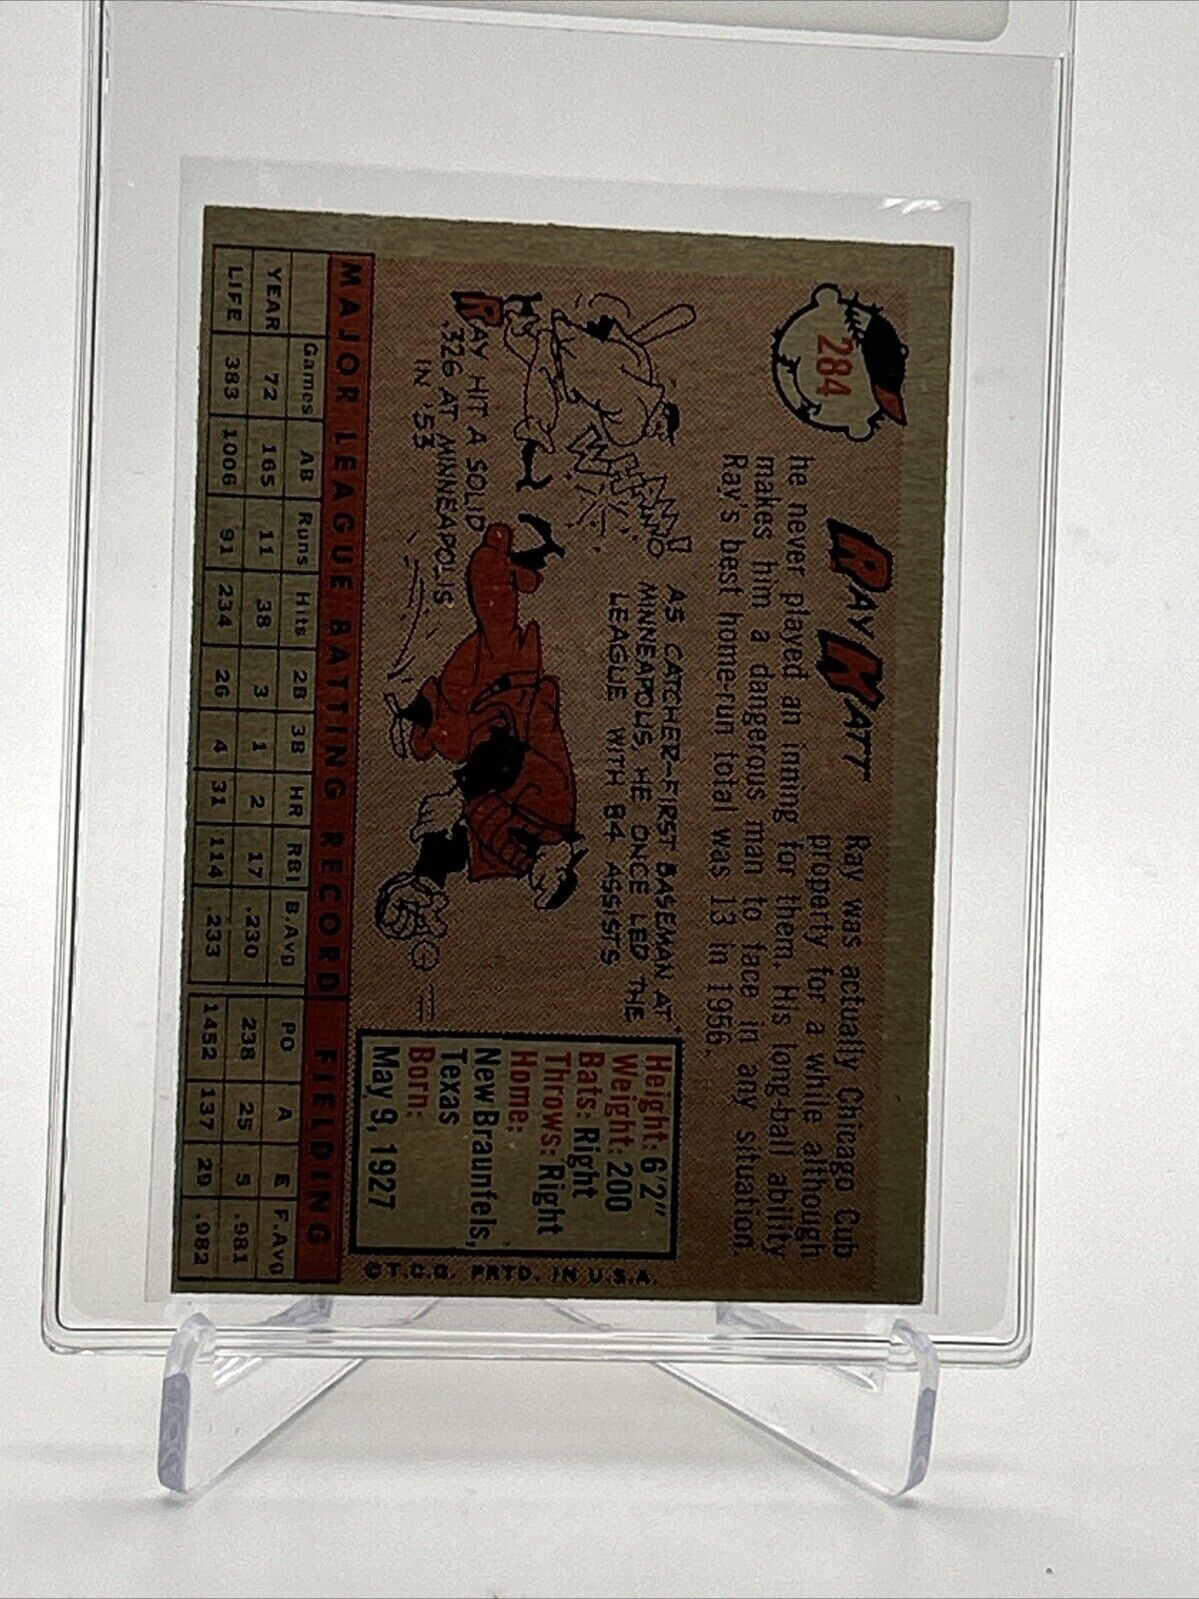 284
RAY KATT
Ray was actually Chicago Cub
property for a while although
he never played an inning for them. His long-ball ability
makes him a dangerous man to face in any situation.
Ray's best home-run total was 13 in 1956.
AS CATCHER-FIRST BASEMAN AT
MINNEAPOLIS, HE ONCE LED THE
LEAGUE WITH 84 ASSISTS
RAY HIT A SOLID
.326 AT MINNEAPOLIS
IN '53
Height: 6'2"
Weight: 200
Bats: Right
Throws: Right
Home:
New Braunfels,
Texas
Born:
May 9, 1927
© T.C.G. PRTD. IN U.S.A.
MAJOR LEAGUE BATTING RECORD FIELDING
Games AB Runs Hits 2B 3B HR RBI B.Avg PO A E F.Avg
YEAR 72 165 11 38 3 1 2 17 .230 238 25 5 .981
LIFE 383 1006 91 234 26 4 31 114 .233 1452 137 29 .982